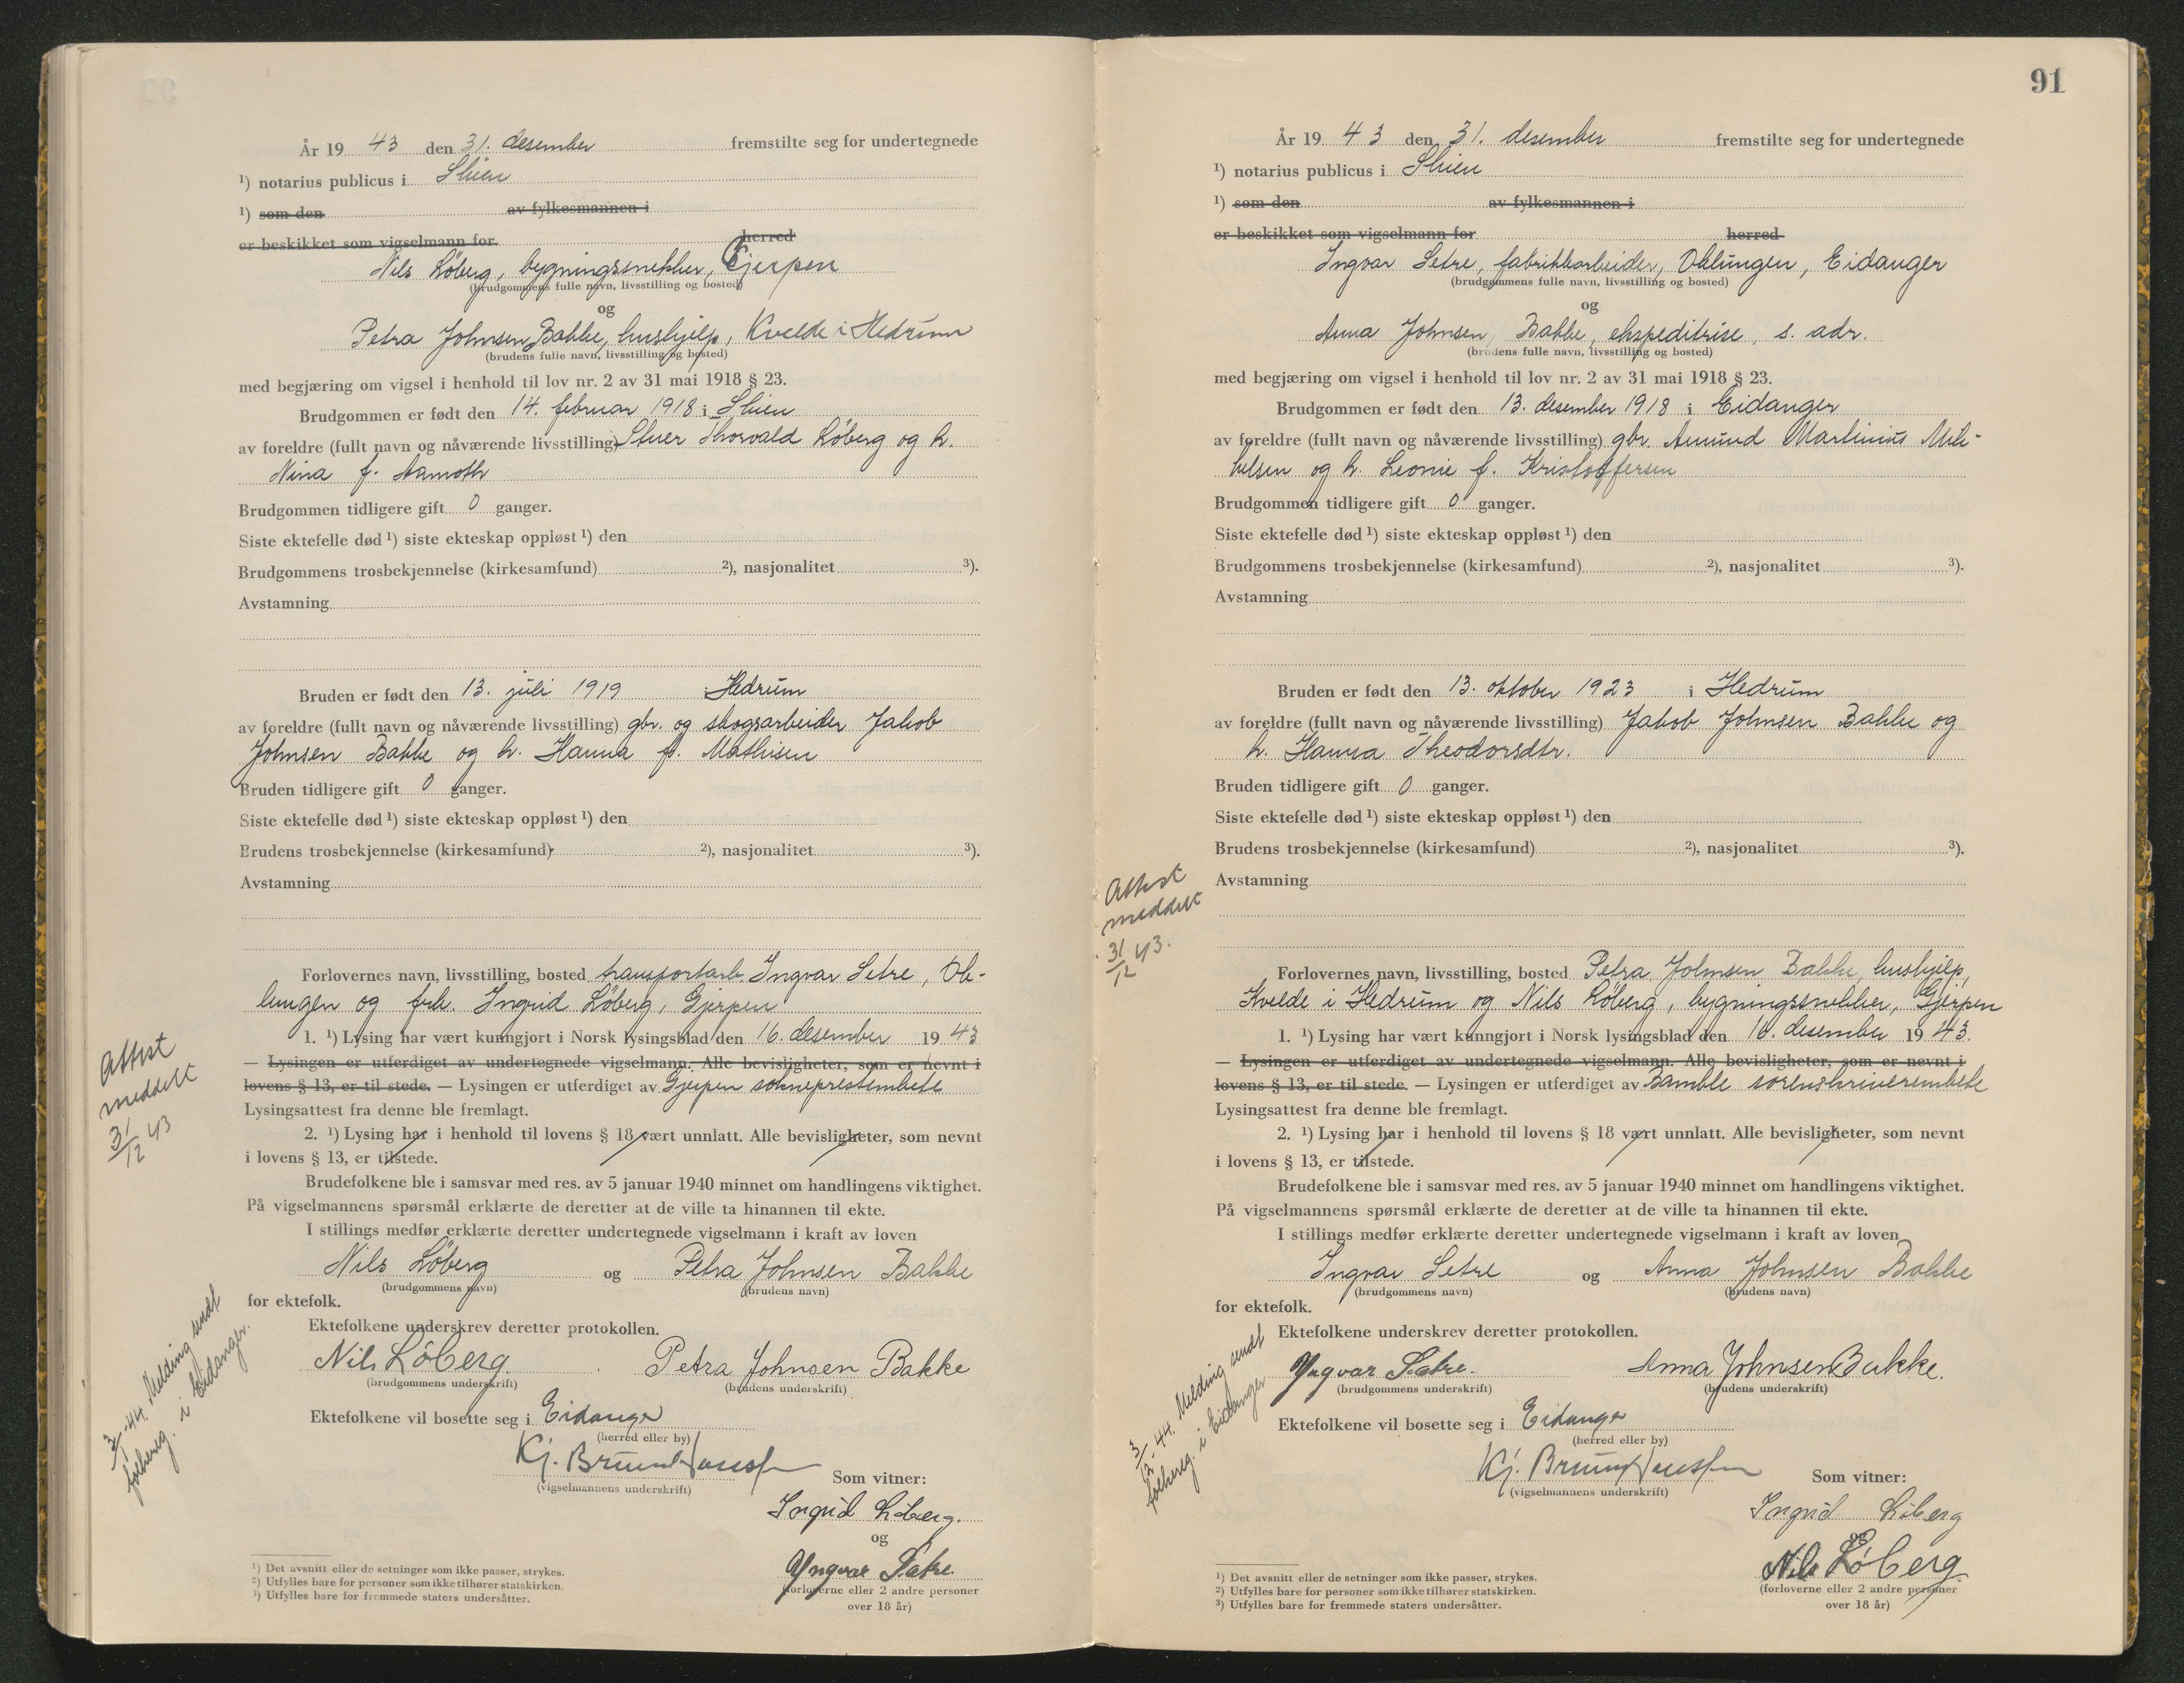 År 19 43 den 31. desember fremstilte seg for undertegnede
¹) notarius publicus i Skien
¹) som den av fylkesmannen i
er beskikket som vigselmann for herred
Nils Löberg, bygningssnekker, Gjerpen
(brudgommens fulle navn, livsstilling og bosted)
og
Petra Johnsen Bakke, hushjelp, Kvelde i Hedrum
(brudens fulle navn, livsstilling og bosted)
med begjæring om vigsel i henhold til lov nr. 2 av 31 mai 1918 § 23.
Brudgommen er født den 14. februar 1918 i Skien
av foreldre (fullt navn og nåværende livsstilling) Stuer Thorvald Löberg og h.
Nina f. Aamoth
Brudgommen tidligere gift 0 ganger.
Siste ektefelle død ¹) siste ekteskap oppløst ¹) den
Brudgommens trosbekjennelse (kirkesamfund) ²), nasjonalitet ³).
Avstamning
Bruden er født den 13. juli 1919 i Hedrum
av foreldre (fullt navn og nåværende livsstilling) gbr. og skogsarbeider Jakob
Johnsen Bakke og h. Hanna f. Mathisen
Bruden tidligere gift 0 ganger.
Siste ektefelle død ¹) siste ekteskap oppløst ¹) den
Brudens trosbekjennelse (kirkesamfund) ²), nasjonalitet ³).
Avstamning
Forlovernes navn, livsstilling, bosted transportarb. Ingvar Setre, Ok-
lungen og frk. Ingrid Löberg, Gjerpen
1. ¹) Lysing har vært kunngjort i Norsk lysingsblad den 16. desember 19 43
— Lysingen er utferdiget av undertegnede vigselmann. Alle bevisligheter, som er nevnt i
lovens § 13, er til stede. — Lysingen er utferdiget av Gjerpen sokneprestembete
Lysingsattest fra denne ble fremlagt.
2. ¹) Lysing har i henhold til lovens § 18 vært unnlatt. Alle bevisligheter, som nevnt
i lovens § 13, er tilstede.
Brudefolkene ble i samsvar med res. av 5 januar 1940 minnet om handlingens viktighet.
På vigselmannens spørsmål erklærte de deretter at de ville ta hinannen til ekte.
I stillings medfør erklærte deretter undertegnede vigselmann i kraft av loven
Nils Löberg og Petra Johnsen Bakke
(brudgommens navn) (brudens navn)
for ektefolk.
Ektefolkene underskrev deretter protokollen.
Nils Löberg. Petra Johnsen Bakke
(brudgommens underskrift) (brudens underskrift)
Ektefolkene vil bosette seg i Eidanger
(herred eller by)
(vigselmannens underskrift)
Som vitner:
Ingrid Löberg.
og
Yngvar Sætre.
(forloverne eller 2 andre personer
over 18 år)
¹) Det avsnitt eller de setninger som ikke passer, strykes.
²) Utfylles bare for personer som ikke tilhører statskirken.
³) Utfylles bare for fremmede staters undersåtter.
Attest
meddelt
31/12 43
Melding sendt
folkereg. i Eidanger.
91
År 19 43 den 31. desember fremstilte seg for undertegnede
¹) notarius publicus i Skien
¹) som den av fylkesmannen i
er beskikket som vigselmann for herred
Ingvar Setre, fabrikkarbeider, Oklungen, Eidanger
(brudgommens fulle navn, livsstilling og bosted)
og
Anna Johnsen Bakke, ekspeditrise, s. adr.
(brudens fulle navn, livsstilling og bosted)
med begjæring om vigsel i henhold til lov nr. 2 av 31 mai 1918 § 23.
Brudgommen er født den 13. desember 1918 i Eidanger
av foreldre (fullt navn og nåværende livsstilling) gbr. Amund Martinius Mik-
kelsen og h. Leonie f. Kristoffersen
Brudgommen tidligere gift 0 ganger.
Siste ektefelle død ¹) siste ekteskap oppløst ¹) den
Brudgommens trosbekjennelse (kirkesamfund) ²), nasjonalitet ³).
Avstamning
Bruden er født den 13. oktober 1923 i Hedrum
av foreldre (fullt navn og nåværende livsstilling) Jakob Johnsen Bakke og
h. Hanna Theodorsdtr.
Bruden tidligere gift 0 ganger.
Siste ektefelle død ¹) siste ekteskap oppløst ¹) den
Brudens trosbekjennelse (kirkesamfund) ²), nasjonalitet ³).
Avstamning
Forlovernes navn, livsstilling, bosted Petra Johnsen Bakke, hushjelp,
Kvelde i Hedrum og Nils Löberg, bygningssnekker, Gjerpen
1. ¹) Lysing har vært kunngjort i Norsk lysingsblad den 16. desember 19 43.
— Lysingen er utferdiget av undertegnede vigselmann. Alle bevisligheter, som er nevnt i
lovens § 13, er til stede. — Lysingen er utferdiget av Bamble sorenskriverembete
Lysingsattest fra denne ble fremlagt.
2. ¹) Lysing har i henhold til lovens § 18 vært unnlatt. Alle bevisligheter, som nevnt
i lovens § 13, er tilstede.
Brudefolkene ble i samsvar med res. av 5 januar 1940 minnet om handlingens viktighet.
På vigselmannens spørsmål erklærte de deretter at de ville ta hinannen til ekte.
I stillings medfør erklærte deretter undertegnede vigselmann i kraft av loven
Ingvar Setre og Anna Johnsen Bakke
(brudgommens navn) (brudens navn)
for ektefolk.
Ektefolkene underskrev deretter protokollen.
Yngvar Sætre. Anna Johnsen Bakke.
(brudgommens underskrift) (brudens underskrift)
Ektefolkene vil bosette seg i Eidanger
(herred eller by)
(vigselmannens underskrift)
Som vitner:
Ingrid Löberg
og
Nils Löberg.
(forloverne eller 2 andre personer
over 18 år)
¹) Det avsnitt eller de setninger som ikke passer, strykes.
²) Utfylles bare for personer som ikke tilhører statskirken.
³) Utfylles bare for fremmede staters undersåtter.
Attest
meddelt
31/12 43.
Melding sendt
folkereg. i Eidanger